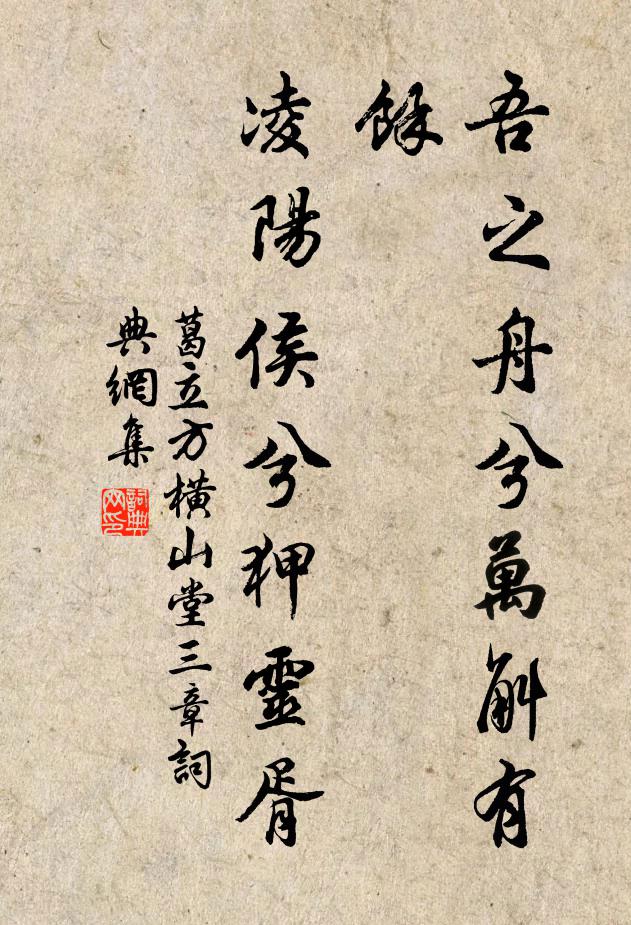 吾之舟兮萬斛有
餘
凌陽侯兮狎靈胥
葛立方橫山堂三章詞
典網集
詞典网印